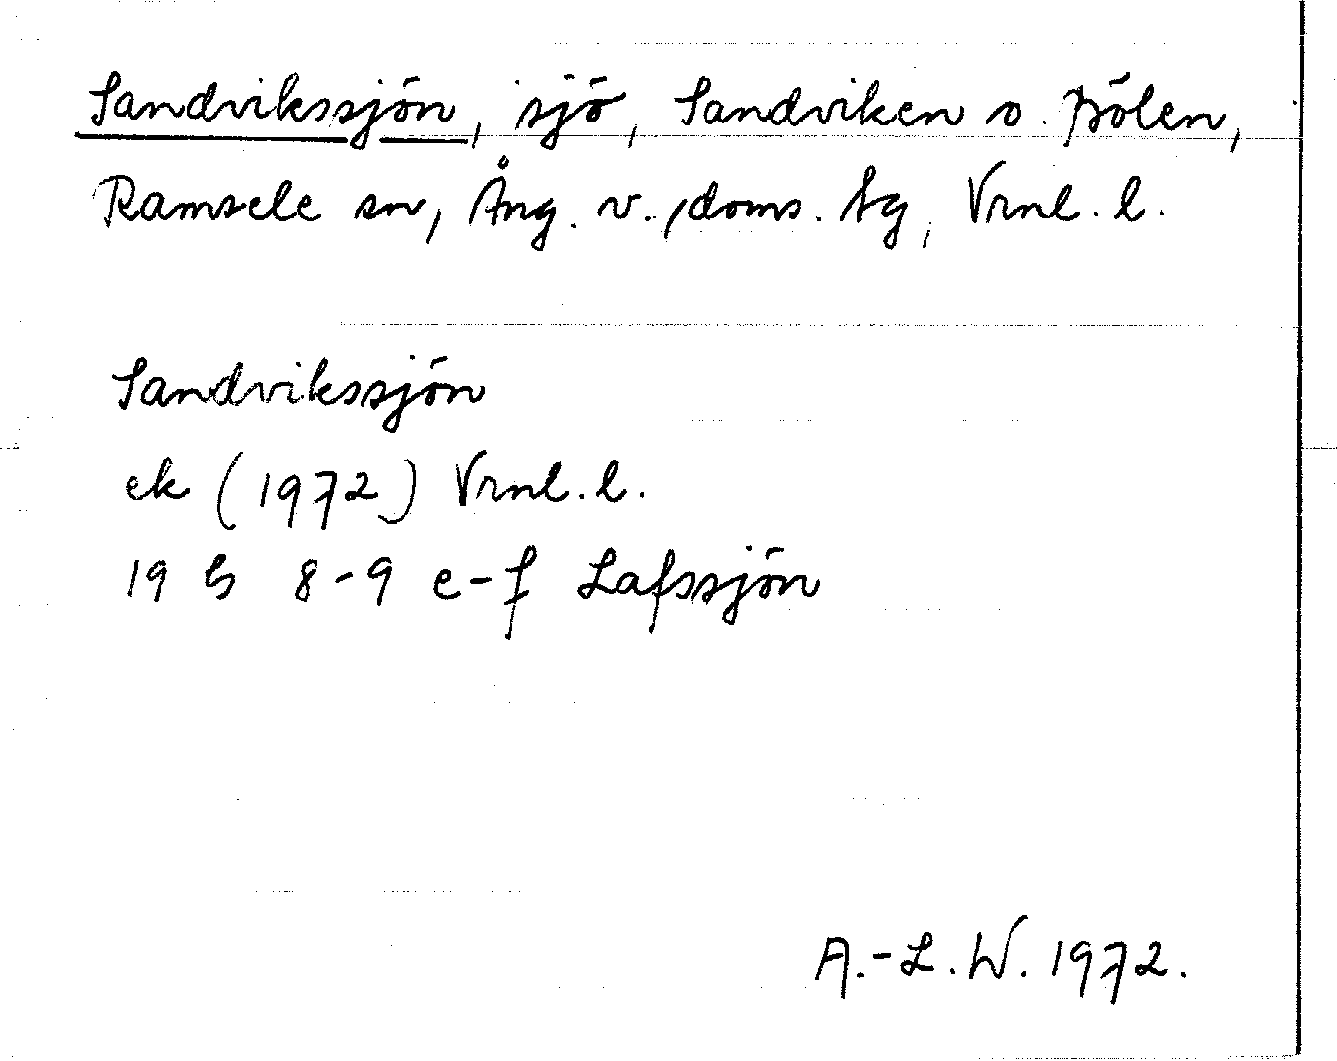 Sandvikssjön, sjö, Sandviken o. Bölen,
Ramsele sn, Ång. v. doms. tg, Vrnl. l.
Sandvikssjön
ek (1972) Vrnl. l.
19 G 8-9 e-f Lafssjön
A.-L. W. 1972.